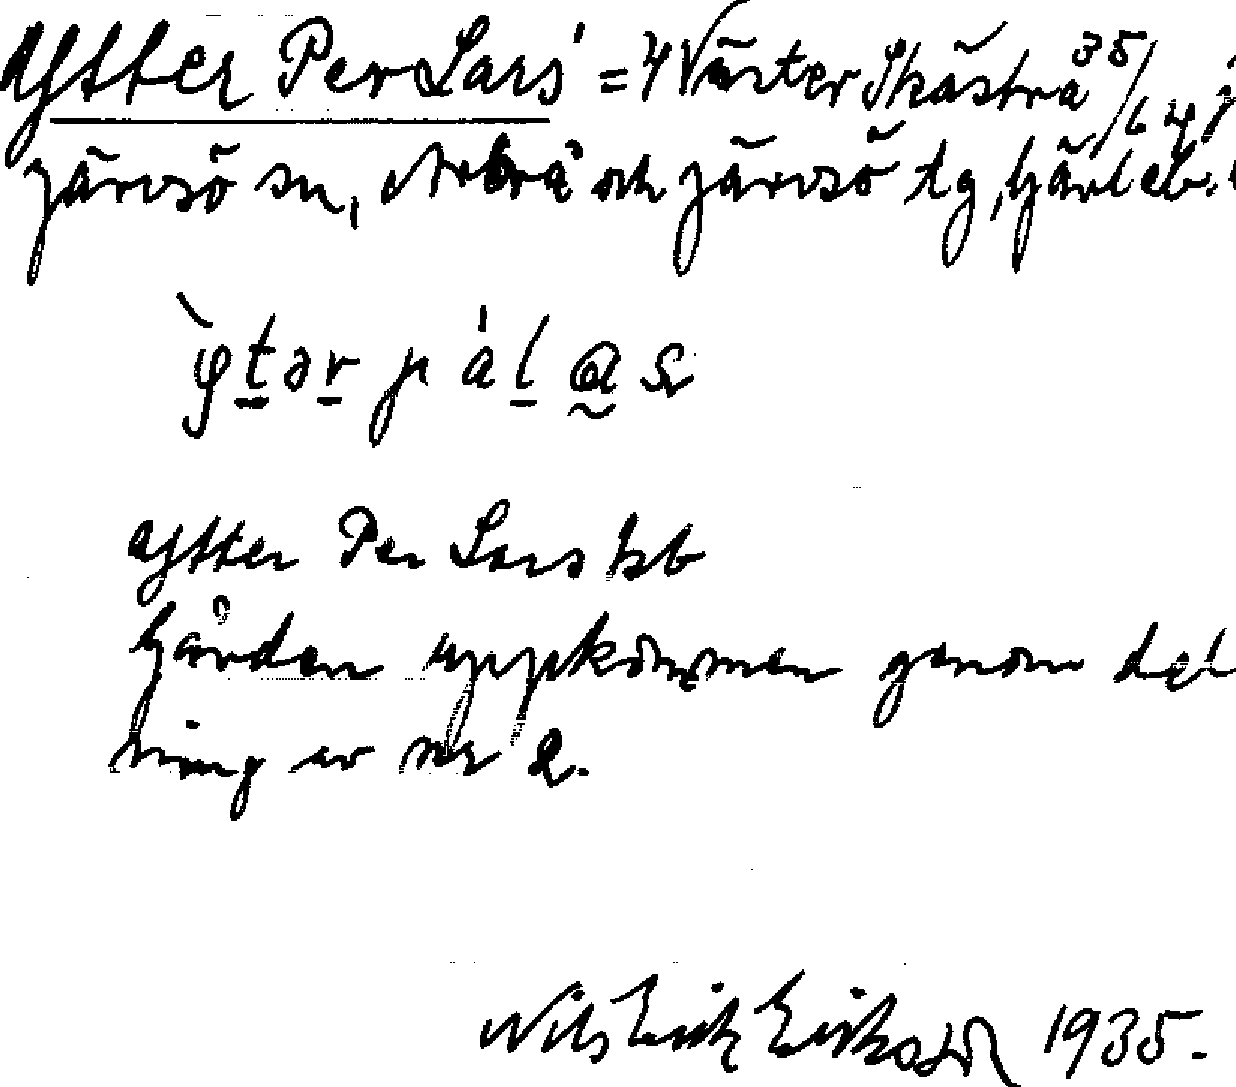 Aftter Per Lars' = 4 Väster Skästra 35/64 i
Järvsö sn, Arbrå och Järvsö tg, Gävleb. l
aftter Per Lars hsb
Gården uppkommen genom del
ning av nr 2.
Nils Erik Eriksson 1935.